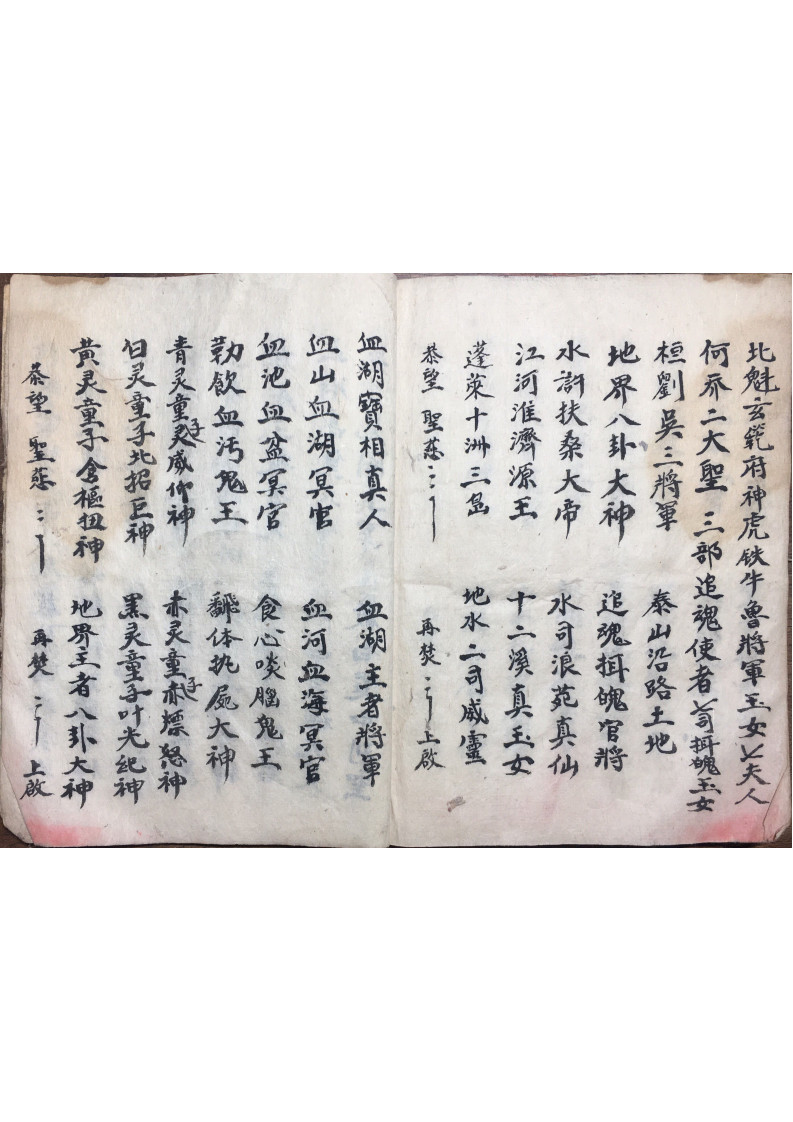 北魁玄範府神虎铁牛魯將軍玉女乂夫人
何乔二大聖 三部追魂使者乂司揖魄玉女
桓劉吳三將軍 泰山沿路土地
地界八卦大神 追魂揖魄官將
水府扶桑大帝 水司浪苑真仙
江河淮濟源王 十二溪真玉女
蓬萊十洲三島 地水二司威靈
恭望 聖慈 再焚 上啟
血湖寶相真人 血湖主者將軍
血山血湖冥官 血河血海冥官
血池血盆冥官 食心啖腦鬼王
勒飲血污鬼王 翻体扤屍大神
青灵童子灵威仰神 赤灵童子赤熛怒神
白灵童子北招巨神 黑灵童子叶光纪神
黄灵童子含樞扭神 地界主者八卦大神
恭望 聖慈 再焚 上啟